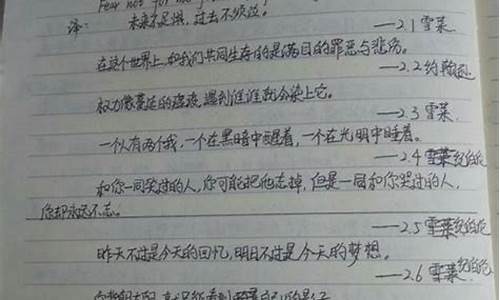 Fear not for
译: 未来不足惧，过去不须泣。
——2.1 雪莱
在这个世界上，和我们共同生存的是满目的罪恶与悲伤。
——2.2
权力像蔓延的瘟疫，遇到谁谁就会染上它。
——2.3 雪莱
一个人有两个我，一个在黑暗中醒着，一个在光明中睡着。
——2.4 雪莱 纪伯伦
和你一同笑过的人，你可能把他忘掉，但是一同和你哭过的人，
你却永远不忘。
——2.5 雪莱 纪伯伦
昨天不过是今天的回忆，明日不过是今天的梦想。
——2.6 雪莱 纪伯伦